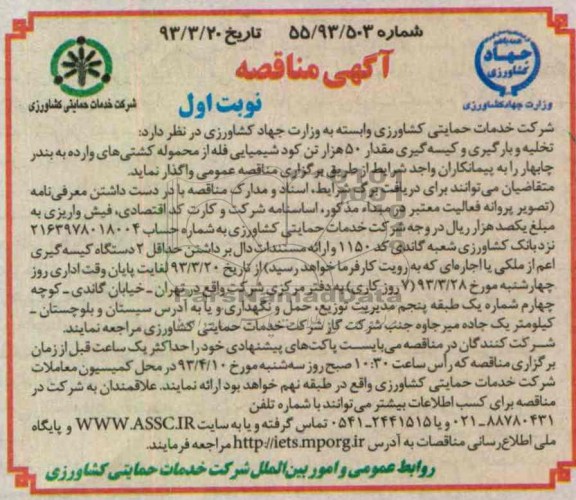 شماره ۵۵/۹۳/۵۰۳ تاریخ ۹۳/۳/۲۰
آگهی مناقصه
نوبت اول
جهاد کشاورزی
وزارت جهاد کشاورزی
شرکت خدمات حمایتی کشاورزی
شرکت خدمات حمایتی کشاورزی وابسته به وزارت جهاد کشاورزی در نظر دارد:
تخلیه و بارگیری و کیسه گیری مقدار ۵۰ هزار تن کود شیمیایی فله از محموله کشتی‌های وارده به بندر
چابهار را به پیمانکاران واجد شرایط از طریق برگزاری مناقصه عمومی واگذار نماید.
متقاضیان می‌توانند برای دریافت برگ شرایط، اسناد و مدارک مناقصه با در دست داشتن معرفی‌نامه
(تصویر پروانه فعالیت معتبر در مبداء مذکور، اساسنامه شرکت و کارت کد اقتصادی، فیش واریزی به
مبلغ یکصد هزار ریال در وجه شرکت خدمات حمایتی کشاورزی به شماره حساب ۲۱۶۳۹۷۸۰۱۸۰۰۴
نزد بانک کشاورزی شعبه گاندی کد ۱۱۵۰ و ارائه مستندات دال بر داشتن حداقل ۲ دستگاه کیسه گیری
اعم از ملکی یا اجاره‌ای که به رویت کارفرما خواهد رسید) از تاریخ ۹۳/۳/۲۰ لغایت پایان وقت اداری روز
چهارشنبه مورخ ۹۳/۳/۲۸ (۷ روز کاری) به دفتر مرکزی شرکت واقع در تهران ـ خیابان گاندی ـ کوچه
چهارم شماره یک طبقه پنجم مدیریت توزیع، حمل و نگهداری و یا به آدرس سیستان و بلوچستان ـ
کیلومتر یک جاده میرجاوه جنب شرکت گاز شرکت خدمات حمایتی کشاورزی مراجعه نمایند.
شــرکت کنندگان در مناقصه می‌بایست پاکت‌های پیشنهادی خود را حداکثر یک ساعت قبل از زمان
برگزاری مناقصه که رأس ساعت ۱۰:۳۰ صبح روز سه‌شنبه مورخ ۹۳/۴/۱۰ در محل کمیسیون معاملات
شرکت خدمات حمایتی کشاورزی واقع در طبقه نهم خواهد بود ارائه نمایند. علاقمندان به شرکت در
مناقصه برای کسب اطلاعات بیشتر می‌توانند با شماره تلفن
۰۲۱-۸۸۷۸۰۴۳۱ و یا ۲۴۴۱۵۱۵-۰۵۴۱ تماس گرفته و یا به سایت WWW.ASSC.IR و پایگاه
ملی اطلاع‌رسانی مناقصات به آدرس http://iets.mporg.ir مراجعه فرمایند.
روابط عمومی و امور بین‌الملل شرکت خدمات حمایتی کشاورزی